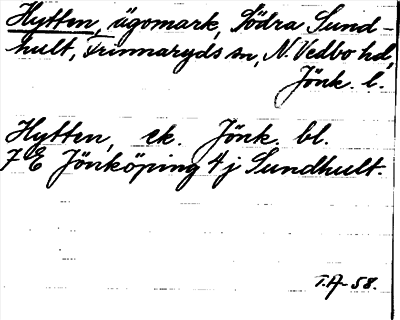 Hytten, ägomark, Södra Sund-
hult, Frinnaryds sn, N. Vedbo hd,
Jönk. l.
Hytten, ek. Jönk. bl.
7 E Jönköping 4 j Sundhult.
T.A-58.